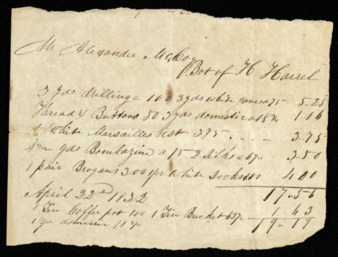 Mr Alexander McCoy
Bot of H Harrel
3 yds drilling a 100 3 yds white 75 - 5.25
Thread & Buttons 50 3 yds domestic a 18¾ 1.06
1 White Marsailles Vest 375 . . . 3.75
yds Bombazine a 75 2 67 . 3.50
1 pair Brogans 300 1 pr white Socks 4.00
17-56
April 22nd 1832
1 Tin Coffee pot 100 1 Tin Bucket 62½ 1 63
1 yd domestic 18¾ 19-19